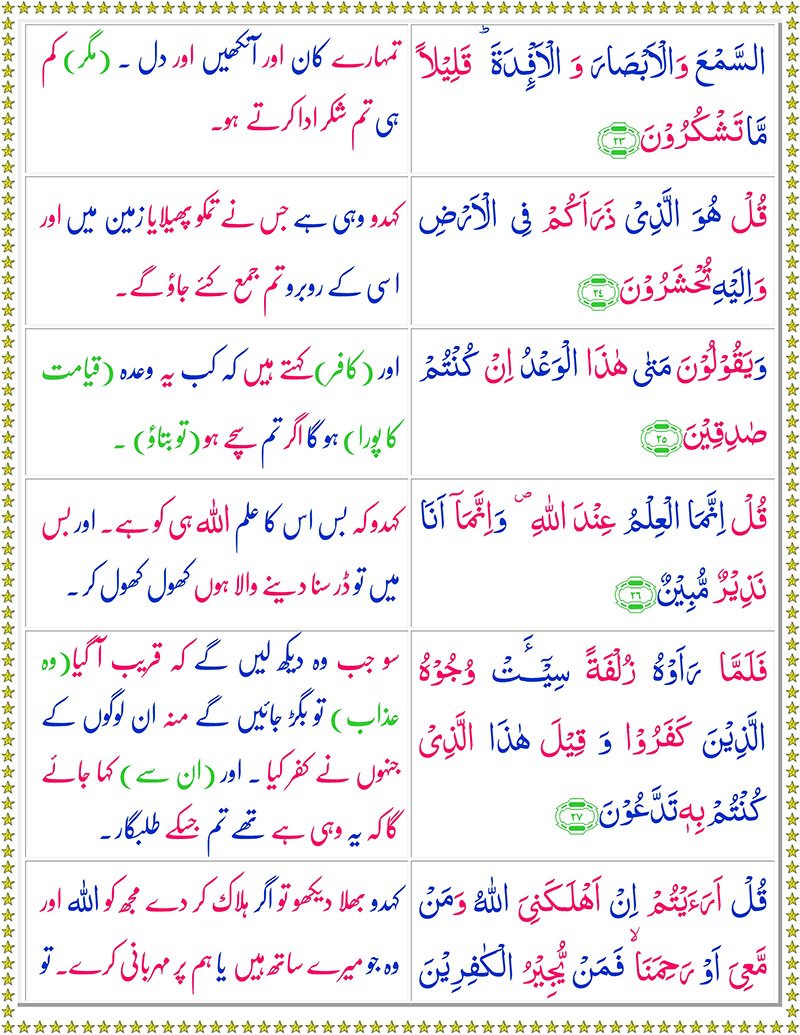 السَّمْعَ وَالْاَبْصَارَ وَ الْاَفْـِٕدَةَ ؕ قَلِيْلاً
مَّا تَشْكُرُوْنَ ۲۳
تمہارے کان اور آنکھیں اور دل ۔ (مگر) کم
ہی تم شکر ادا کرتے ہو۔
قُلْ هُوَ الَّذِىْ ذَرَاَكُمْ فِى الْاَرْضِ
وَاِلَيْهِ تُحْشَرُوْنَ ۲۴
کہدو وہی ہے جس نے تمکو پھیلایا زمین میں اور
اسی کے روبرو تم جمع کئے جاؤ گے۔
وَيَقُوْلُوْنَ مَتٰى هٰذَا الْوَعْدُ اِنْ كُنْتُمْ
صٰدِقِيْنَ ۲۵
اور (کافر) کہتے ہیں کہ کب یہ وعدہ (قیامت
کا پورا) ہو گا اگر تم سچے ہو (تو بتاؤ) ۔
قُلْ اِنَّمَا الْعِلْمُ عِنْدَ اللهِ ۖ وَاِنَّمَاۤ اَنَا
نَذِيْرٌ مُّبِيْنٌ ۲۶
کہدو کہ بس اس کا علم اللہ ہی کو ہے۔ اور بس
میں تو ڈر سنا دینے والا ہوں کھول کھول کر ۔
فَلَمَّا رَاَوْهُ زُلْفَةً سِیْٓـَٔتْ وُجُوْهُ
الَّذِيْنَ كَفَرُوْا وَ قِيْلَ هٰذَا الَّذِىْ
كُنْتُمْ بِهٖ تَدَّعُوْنَ ۲۷
سو جب وہ دیکھ لیں گے کہ قریب آ گیا (وہ
عذاب) تو بگڑ جائیں گے منہ ان لوگوں کے
جنہوں نے کفر کیا ۔ اور (ان سے) کہا جائے
گا کہ یہ وہی ہے تھے تم جسکے طلبگار۔
قُلْ اَرَءَيْتُمْ اِنْ اَهْلَـكَنِىَ اللهُ وَمَنْ
مَّعِىَ اَوْ رَحِمَنَا ۙ فَمَنْ يُّجِيْرُ الْكٰفِرِيْنَ
کہدو بھلا دیکھو تو اگر ہلاک کر دے مجھ کو اللہ اور
وہ جو میرے ساتھ ہیں یا ہم پر مہربانی کرے۔ تو